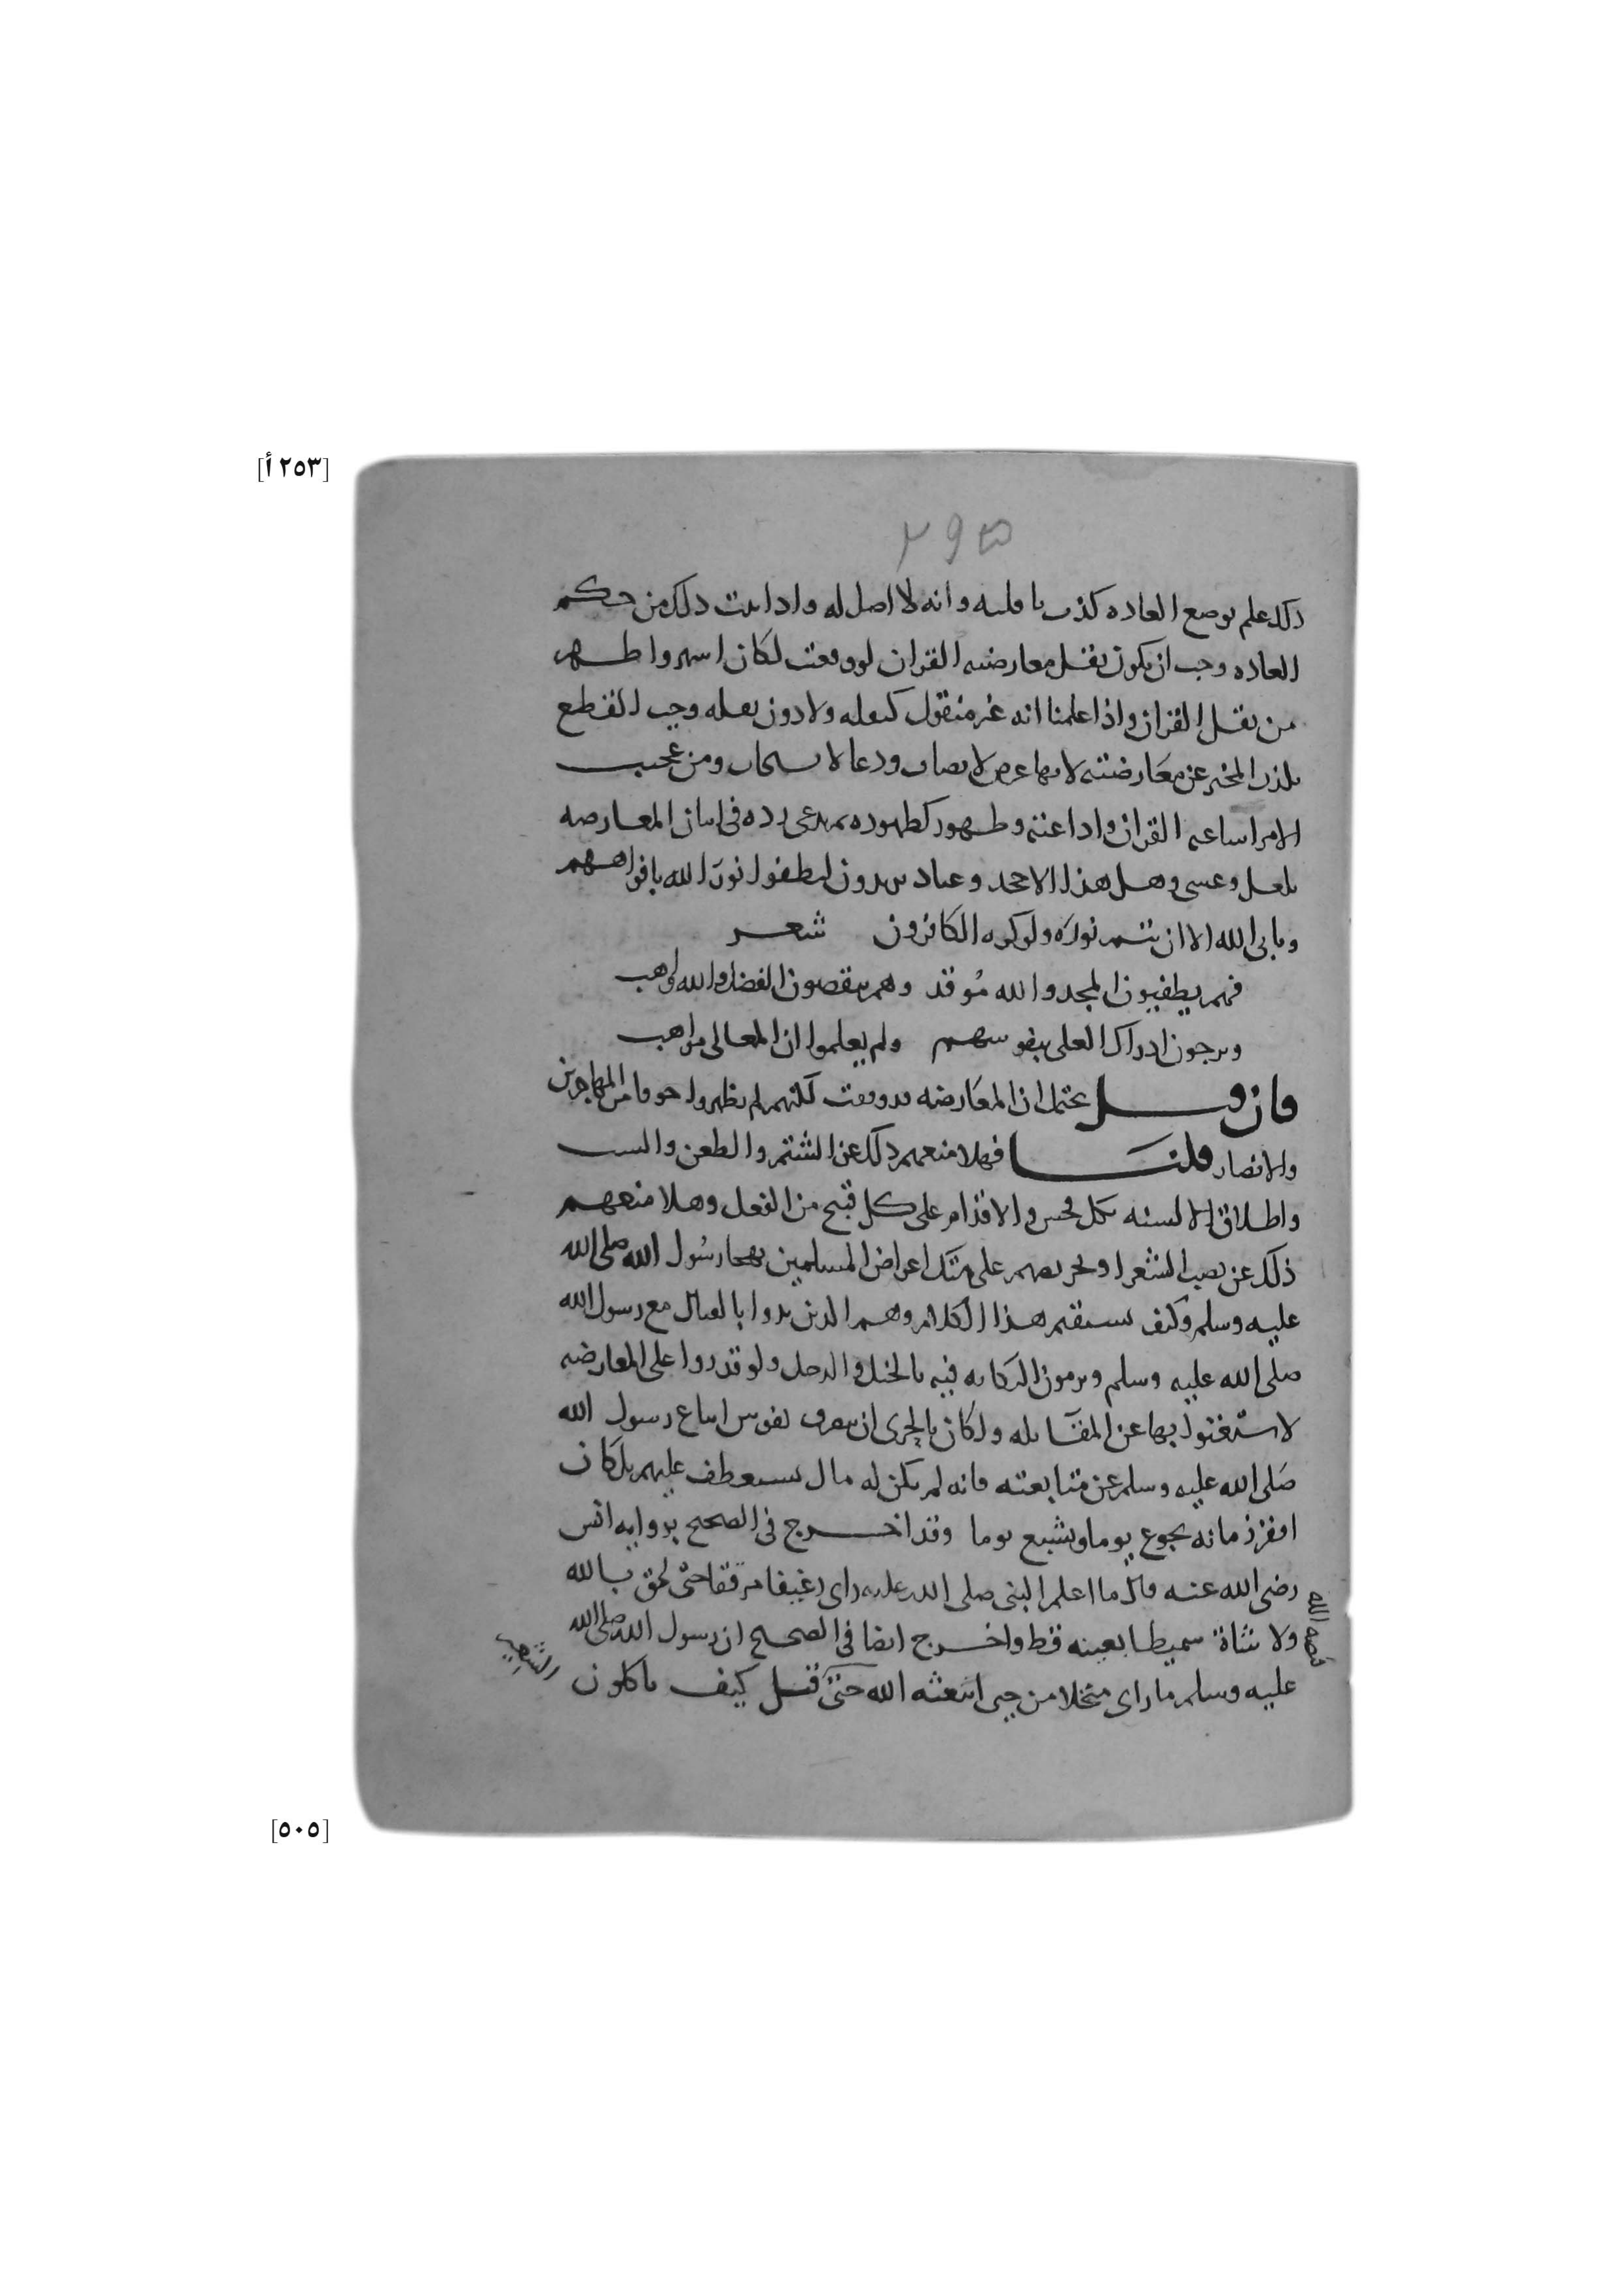 [٢٥٣ أ]
٢٩٥
ذلك علم بوضع العاده كذب ناقليه وانه لا اصل له واذا ثبت ذلك من حكم
العاده وجب ان يكون نقل معارضه القران لو وقعت لكان اشهر واظهر
من نقل القران واذا علمنا انه غير منقول كنقله ولا دون نقله وجب القطع
بكذب المخبر عن معارضته لانها ومن عجيب
الامر اشاعه القران واذاعته وظهوره كظهوره يدعى رده فى اتيان المعارضه
بلعل وعسى وهل هذا الا جحد وعناد يريدون ليطفوا نور الله بافواههم
ويابى الله الا ان يتم نوره ولو كره الكافرون شعر
فهم يطفيون المجد والله موقد وهم ينقصون الفضل والله واهب
ويرجون ادراك العلى بنفوسهم ولم يعلموا ان المعالى مواهب
فان قيل يحتمل ان المعارضه قد وقعت لكنهم لم يظهروا خوفا من المهاجرين
والانصار قلنا فهلا منعهم ذلك عن الشتم والطعن والسب
واطلاق الالسنه بكل فحش والاقدام على كل قبيح من الفعل وهلا منعهم
ذلك عن نصب الشعرا وتحريضهم على هتك اعراض المسلمين بهجا رسول الله صلى الله
عليه وسلم وكيف يستقيم هذا الكلام وهم الذين بدوا بالقتال مع رسول الله
صلى الله عليه وسلم ويرمون النكايه فيه بالخيل والرجل ولو قدروا على المعارضه
لاستغنوا بها عن المقابله ولكان بالحرى ان يصرف نفوس اتباع رسول الله
صلى الله عليه وسلم عن متابعته فانه لم يكن له مال يستعطف عليهم بل كان
افقر زمانه يجوع يوما ويشبع يوما وقد اخرج فى الصحيح بروايه انس
رضى الله عنه قال ما اعلم النبى صلى الله عليه راى رغيفا مرققا حتى لحق بالله
ولا شاة سميطا بعينه قط واخرج ايضا فى الصحيح ان رسول الله صلى الله
عليه وسلم ما راى منخلا من حين ابتعثه الله حتى قبل كيف تاكلون الشعير
قبضه الله
[٥٠٥]